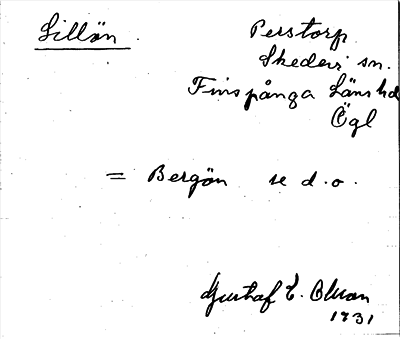 Lillön
Perstorp
Skedevi sn.
Finspånga Läns hd
Ögl
= Bergön se d.o.
Gustaf E. Olson
1931